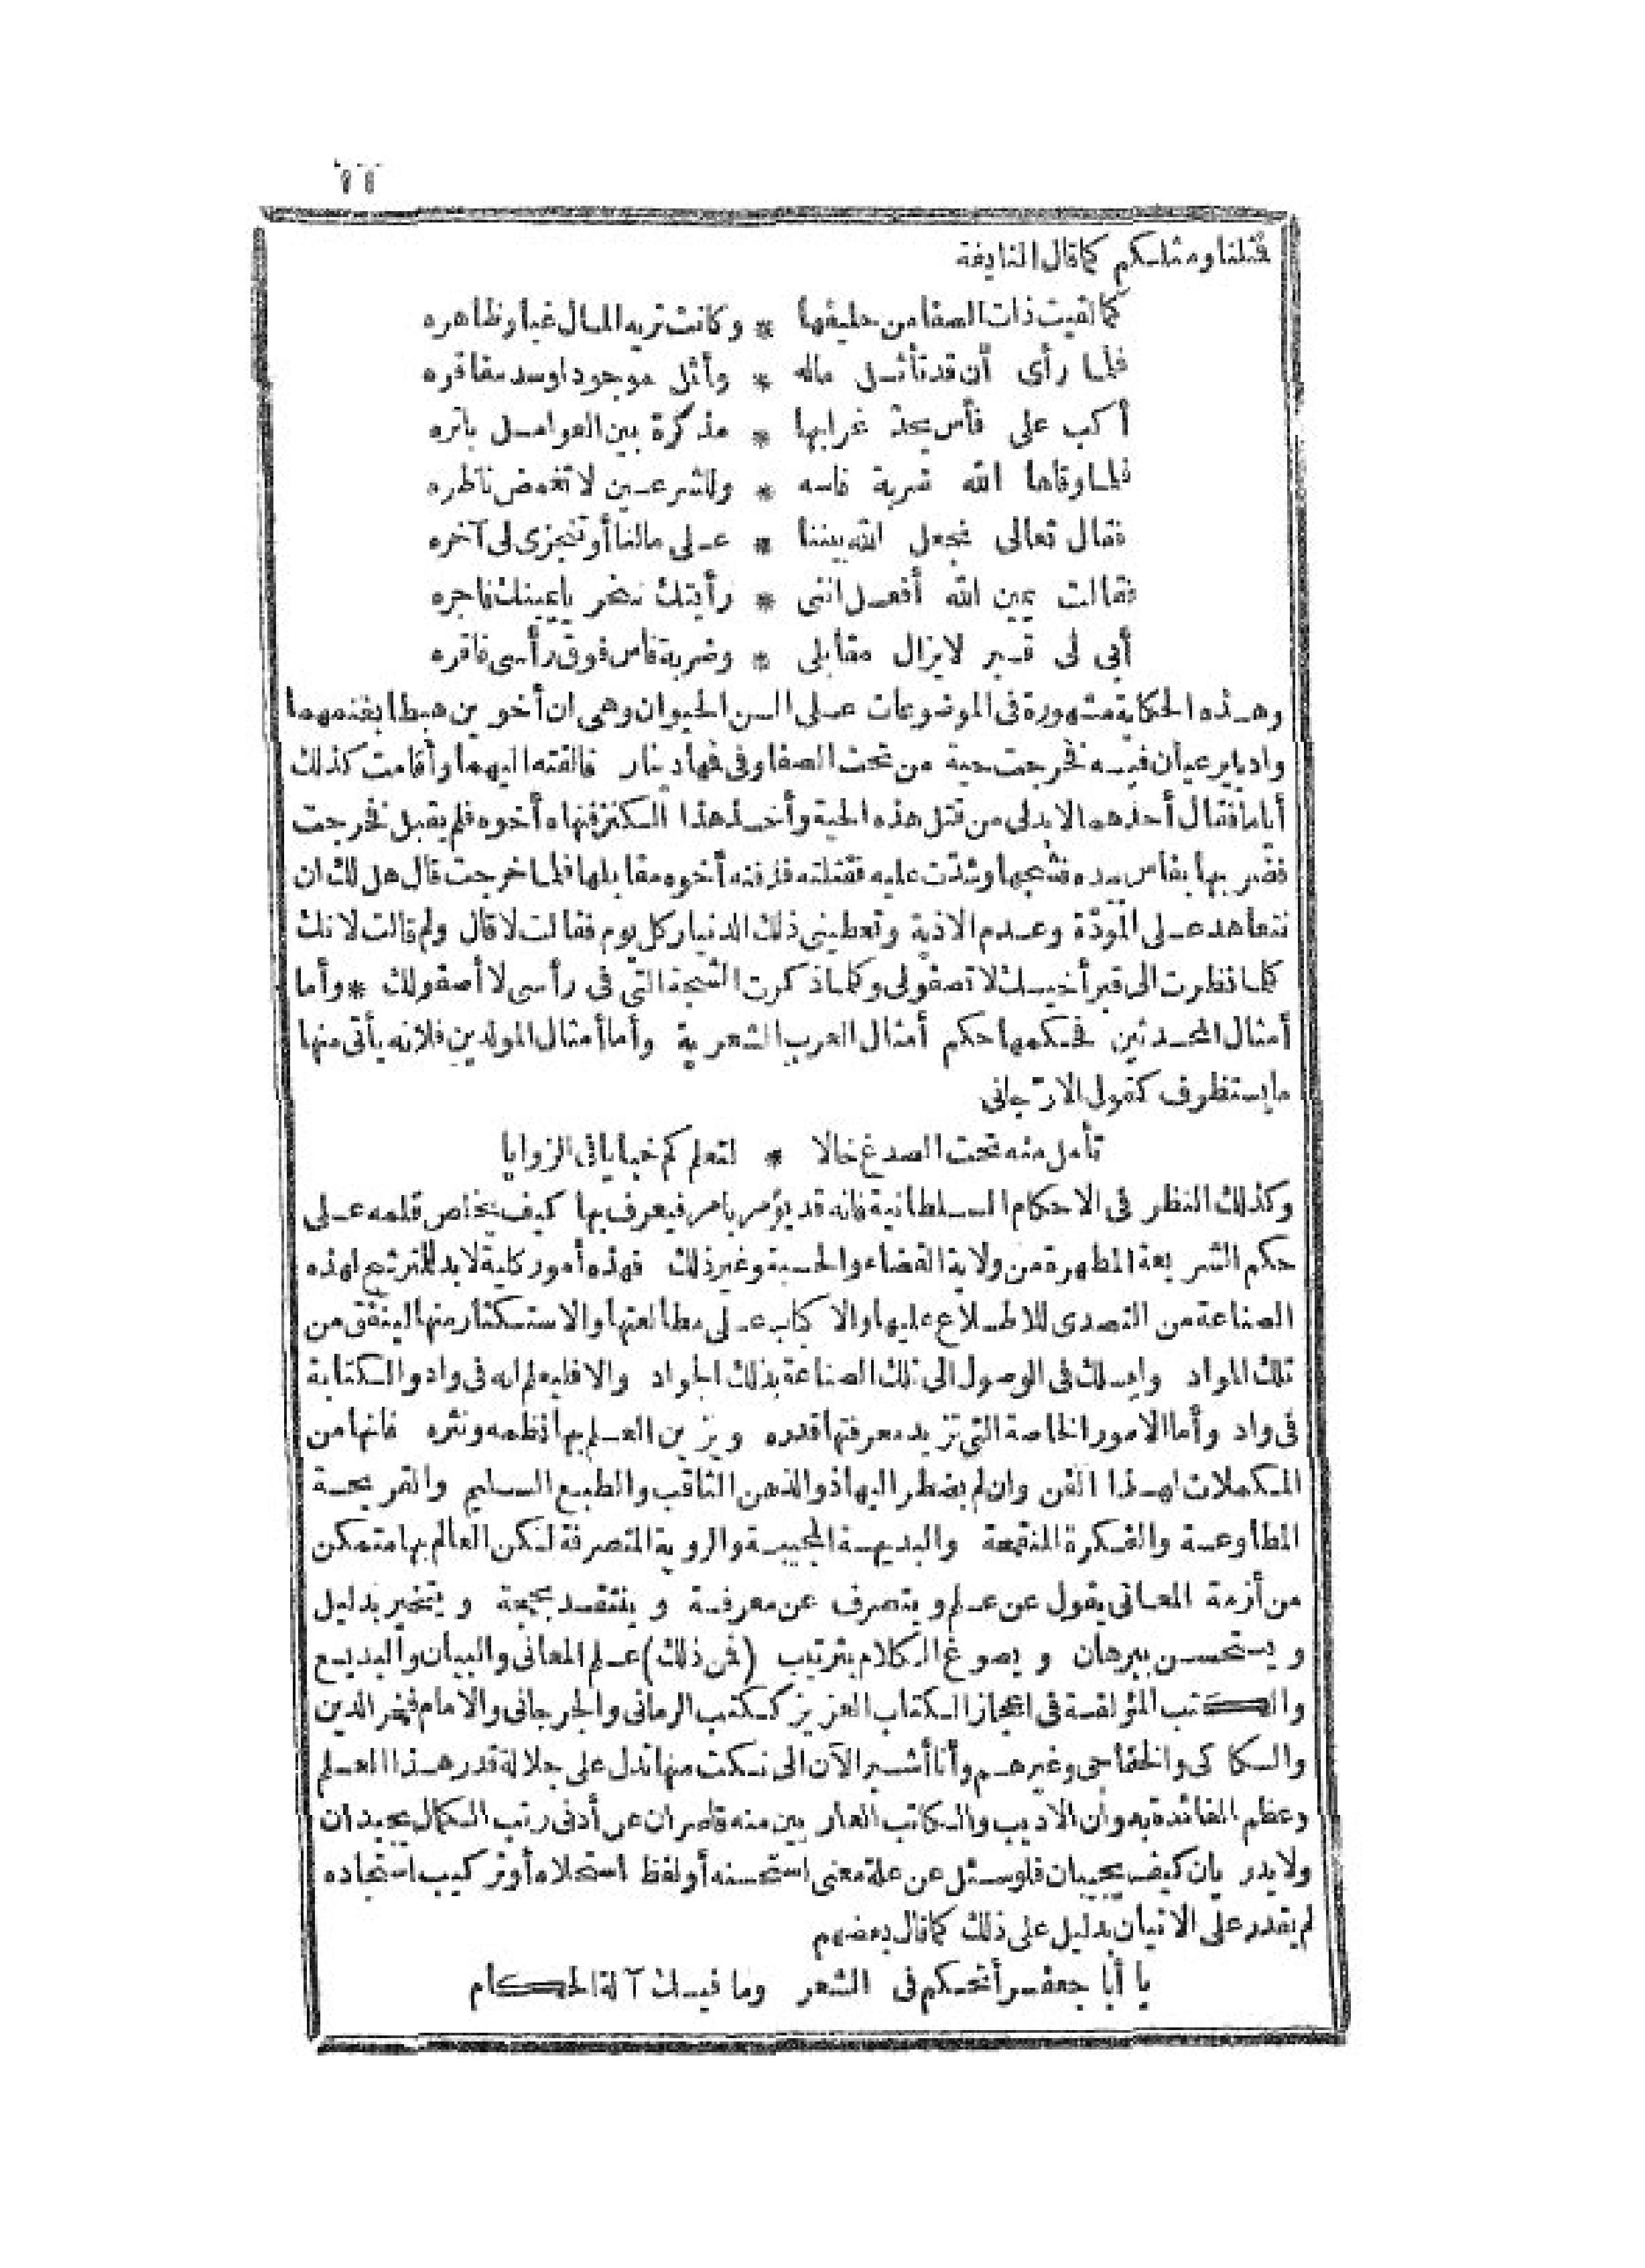 فمثلنا ومثلكم كما قال النابغة
كما لقيت ذات الصفا من حليفها * وكانت تريه المال غبا وظاهره
فلما رأى أن قد تأثل ماله * وأثل موجودا وسد مفاقره
أكب على فأس يحدّ غرابها * مذكرة بين العوامل باتره
فلما وقاها الله ضربة فاسه * وللشر عين لا تغمض ناظره
فقال تعالى نجعل الله بيننا * على مالنا أو تنجزى لى آخره
فقالت يمين الله أفعل اننى * رأيتك تختر يا عينك فاجره
أبى لى قبر لا يزال مقابلى * وضربة فأس فوق رأسى فاقره
وهذه الحكاية مشهورة فى الموضوعات على السن الحيوان وهى ان أخوين هبطا بغنمهما
واديا يرعيان فيه فخرجت حية من تحت الصفا وفى فها دينار فالقته اليهما وأقامت كذلك
أياما فقال أحدهما لا بد لى من قتل هذه الحية وأخذ هذا الكنز فنهاه أخوه فلم يقبل فخرجت
فضربها بفأس بيده فشجها وشدّت عليه فقتلته فدفنه أخوه مقابلها فلما خرجت قال هل لك ان
نتعاهد على المودّة وعدم الاذية وتعطينى ذلك الدنيار كل يوم فقالت لا قال ولم قالت لانك
كلما نظرت الى قبر أخيك لا تصفولى وكلما ذكرت الشجة التى فى رأسى لا أصفولك * وأما
أمثال المحدثين فحكمها حكم أمثال العرب الشعرية وأما أمثال المولدين فلانه يأتى منها
ما يستظرف كقول الارّجانى
تأمل منه تحت الصدغ خالا * لتعلم كم خبايا فى الزوايا
وكذلك النظر فى الاحكام السلطانية فانه قد يؤمر بامر فيعرف بها كيف يخلص قلمه على
حكم الشريعة المطهرة من ولاية القضاء والحسبة وغير ذلك فهذه أمور كلية لابد للمترشح لهذه
الصناعة من التصدى للاطلاع عليها والاكباب على مطالعتها والاستكثار منها لينفق من
تلك المواد وليسلك فى الوصول الى تلك الصناعة بذلك الجواد والا فليعلم انه فى واد والكتابة
فى واد وأما الامور الخاصة التى تزيد معرفتها قدره ويزين العلم بها نظمه ونثره فانها من
المكملات لهذا الفن وان لم يضطر اليها ذو الذهن الثاقب والطبع السليم والقريحة
المطاوعة والفكرة المنقحة والبديهة المجيبة والروية المتصرفة لكن العالم بها متمكن
من أزمة المعانى يقول عن علم ويتصرف عن معرفة وينتقد بحجة ويتخير بدليل
ويستحسن ببرهان ويصوغ الكلام بترتيب (فمن ذلك) علم المعانى والبيان والبديع
والكتب المؤلفة فى اعجاز الكتاب العزيز ككتب الرمانى والجرجانى والامام فخر الدين
والسكاكى والخفاجى وغيرهم وأنا أشير الآن الى نكت منها تدل على جلالة قدر هذا العلم
وعظم الفائدة به وأن الاديب والكاتب العاريين منه قاصران عن أدنى رتب الكمال يجيدان
ولا يدريان كيف يجيبان فلو سئل عن علة معنى استحسنه أو لفظ استحلاه أو تركيب استجاده
لم يقدر على الاتيان بدليل على ذلك كما قال بعضهم
يا أبا جعفر أتحكم فى الشعر وما فيك آلة الحكام